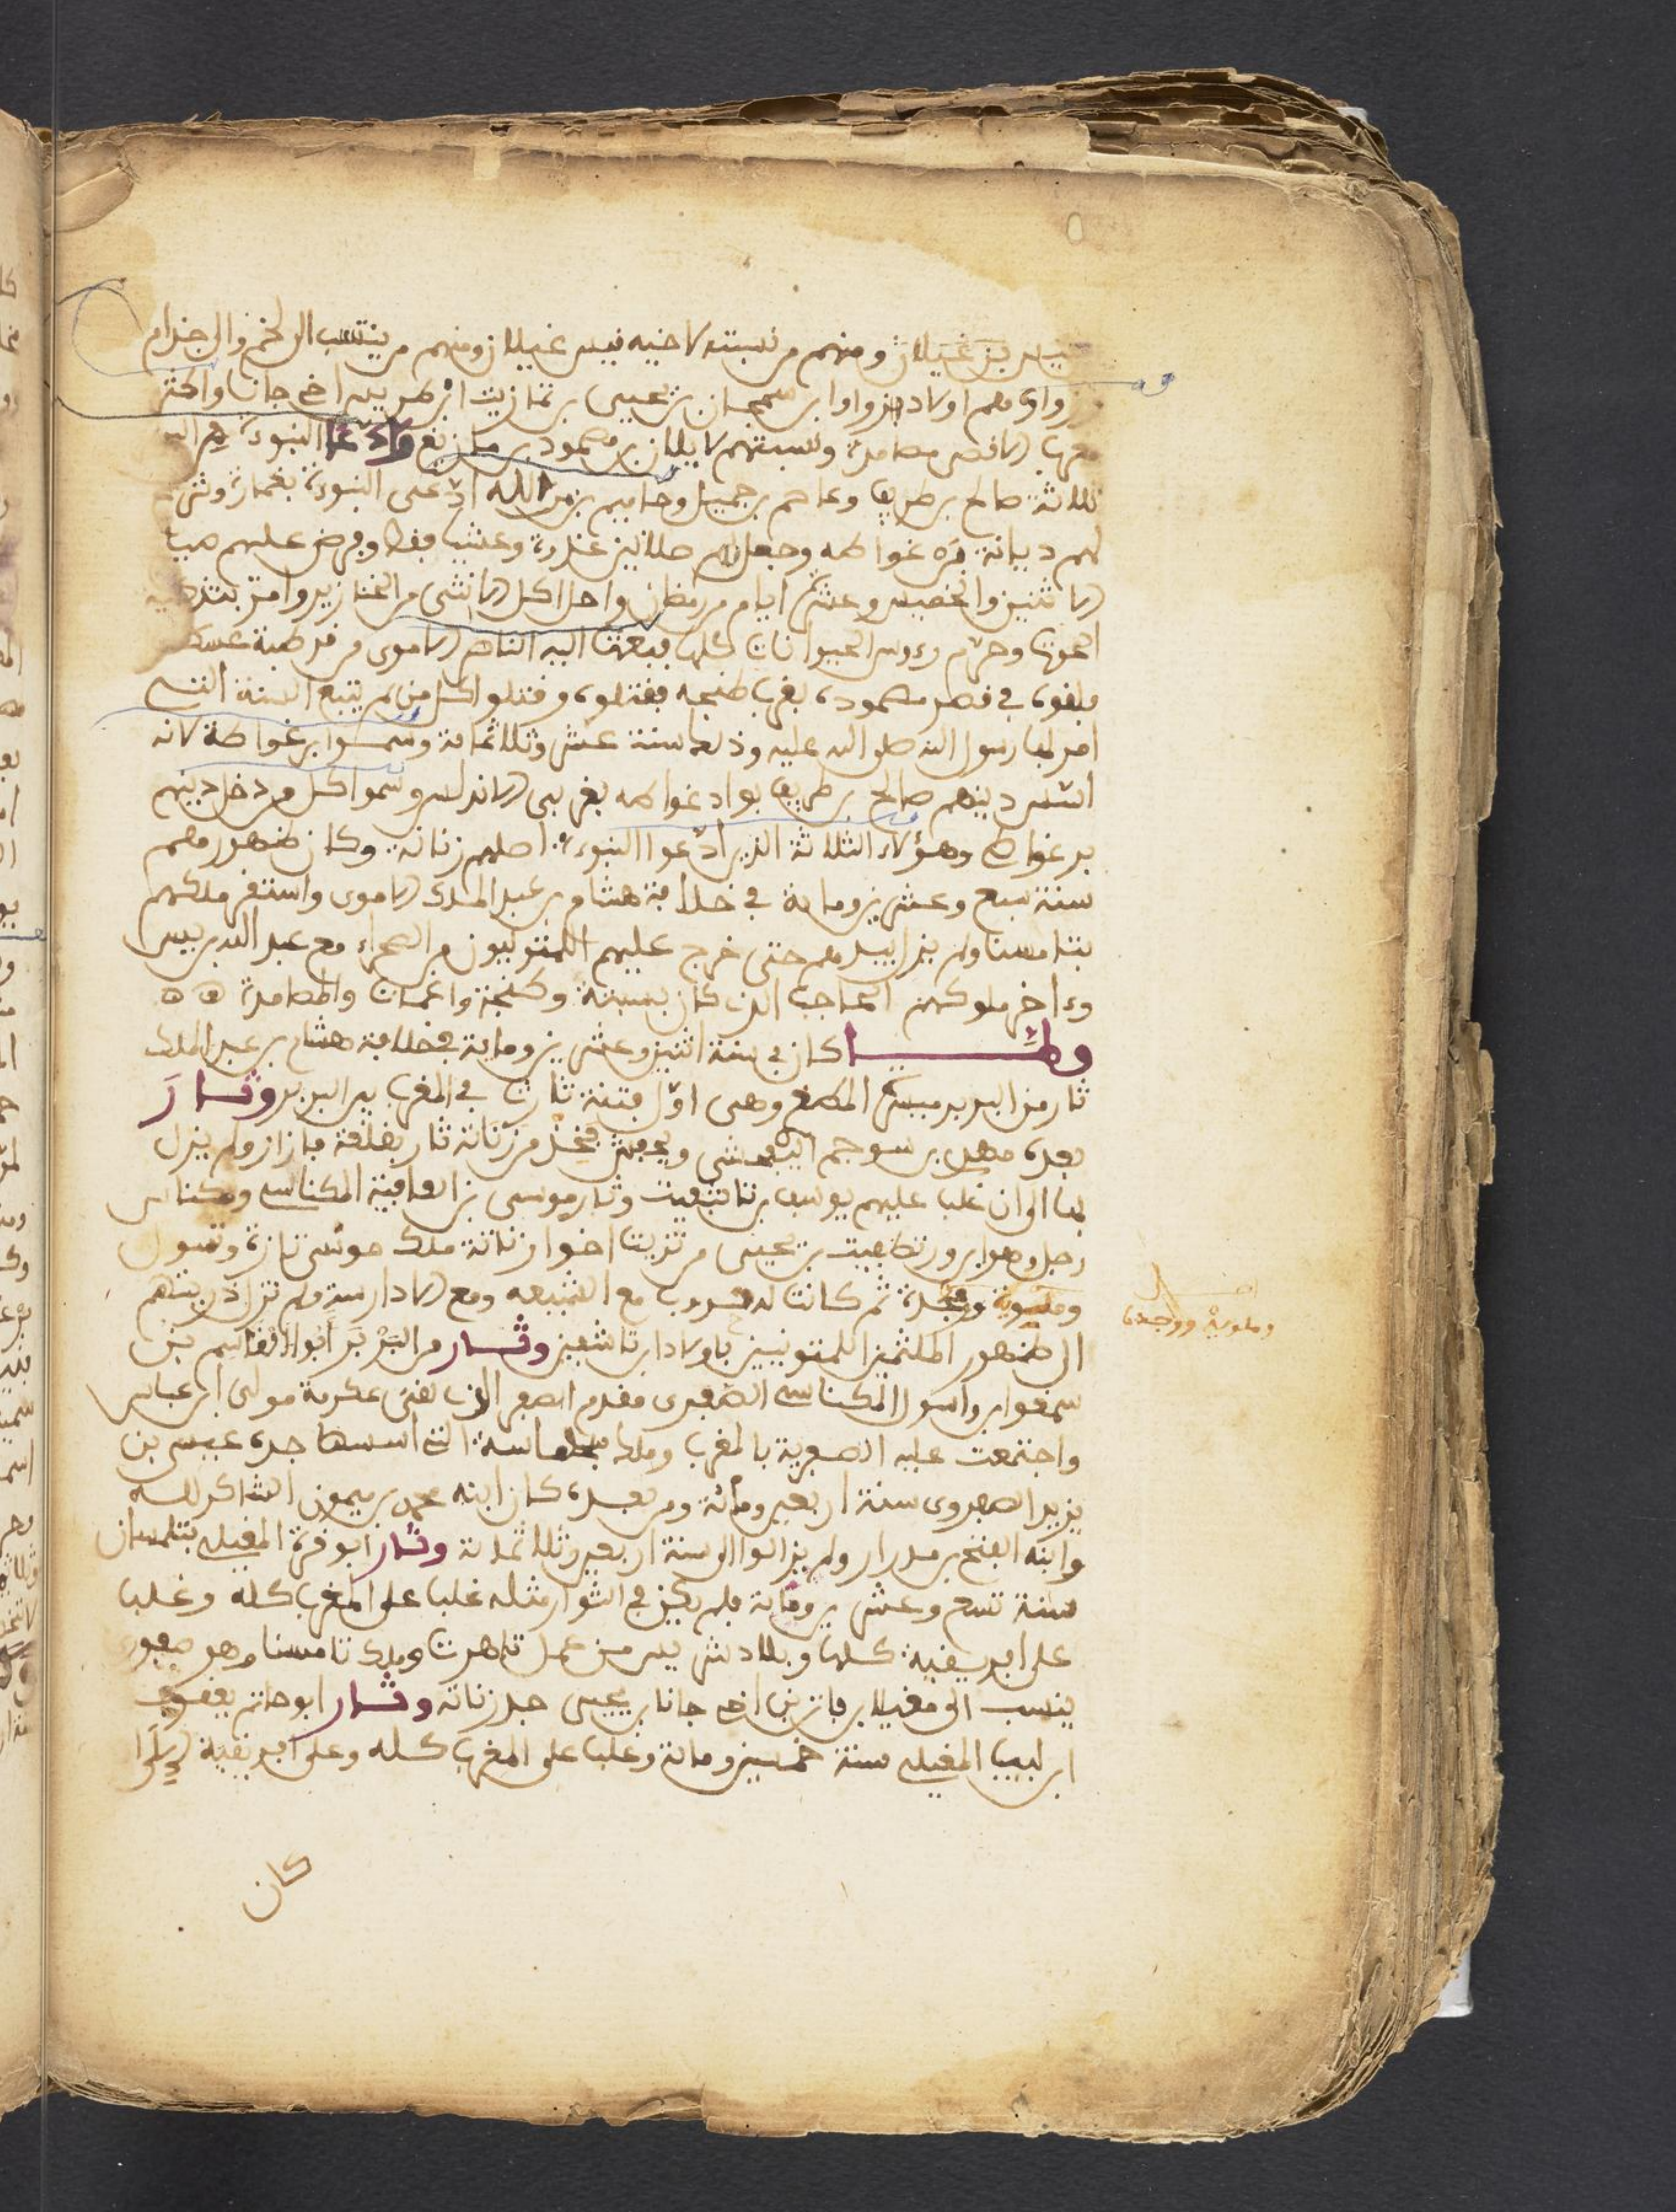 بن غيلان ومنهم من نسبته لاخيه فيس غيلان ومنهم من ينتسب الى لخم والى جذام
زواوى وهم اولاد زواوا بن سمجان بن يحيى بن تمازيت ابن ضريس اخى جانا واكثر
الاقصى مصامدة ونسبتهم لايلان بن مصمود بن مازيغ وادعا النبوءة من البر
ثلاثة صالح بن طريف وعاصم بن جميل وحاميم بن من الله ادعى النبوءة بغمارة وشرع
لهم ديانة برغواطه وجعل لهم صلاتين غدوة وعشيا فقط وفرض عليهم صيام
الاثنين والخميس وعشرة ايام من رمضان واحل اكل الانثى من الخنازير وامر بتذكية
الحوت وحرم رءوس الحيوانات كلها فبعث اليه الناصر الاموى من قرطبة عسكر
فلقوه في قصر مصمودة بغرب طنجه فقتلوه وقتلوا كل من لم يتبع السنة التى
امر بها رسول الله صلى الله عليه وذلك سنة عشر وثلاثمائة وسموا برغواطة لانه
اسس دينهم صالح بن طريف بواد غواطه بغربى الاندلس وسموا كل من دخل دينهم
برغواطى وهؤلاء الثلاثة الذين ادعوا النبوءة اصلهم زناتة وكان ظهورهم
سنة سبع وعشرين وماية في خلافة هشام بن عبد الملك الاموى واستقر ملكهم
بتامسنا ولم يزل بيدهم حتى خرج عليهم اللمتونيون من الصحراء مع عبد الله بن يس
وءاخر ملوكهم الحاجب الذى كان بسبتة وطنجة واغمات والمصامدة
ولما كان في سنة اثنين وعشرين وماية في خلافة هشام بن عبد الملك
ثار من البربر ميسرة المطغرى وهى اول فتنة ثارت في المغرب بين البربر وثار
بعده مهدى بن سوجم اليفرشى ويفرش فخذ من زناتة ثار بقلعة فازاز ولم يزل
بها الى ان غلب عليهم يوسف بن تاشفين وثار موسى بن ابى العافية المكناسى ومكناس
رجل وهو ابن ورتطبيت بن يحيى من تزيت اخوا زناتة ملك حوشى تازة وتسول
وملوية ووجدة ثم كانت له حروب مع الشيعه ومع الادارسة ولم تزل ذريتهم
الى ظهور الملثمين اللمتونيين باولاد ابن تاشفين وثار من البربر ابو القاسم بن
سمغوا بن واسول المكناسى الصفرى مقدم الصفر الذى لقى عكرمة مولى ابن عباس
واجتمعت عليه الصفرية بالمغرب وملك سجلماسة التى اسسها جده عيسى بن
يزيد الصفروى سنة اربعين ومائة ومن بعده كان ابنه محمد بن ميمون الشاكر لله
وابنه الفتح بن مدرار ولم يزالوا الى سنة اربعين وثلاثمائة وثار ابو قرة المغيلى بتلمسان
سنة تسع وعشرين ومائة فلم يكن في الثوار مثله غلب على المغرب كله وغلب
على افريقية كلها وبلاد شريس من عمل تاهرت وملك تامسنا وهو صفورى
ينسب الى مغيلا بن فاتن بن اخى جانا بن يحيى جد زناتة وثار ابو حاتم يعقوب
ابن لبيب المغيلى سنة خمسين ومائة وغلب على المغرب كله وعلى افريقية
كان
اصل
وملوية ووجدة